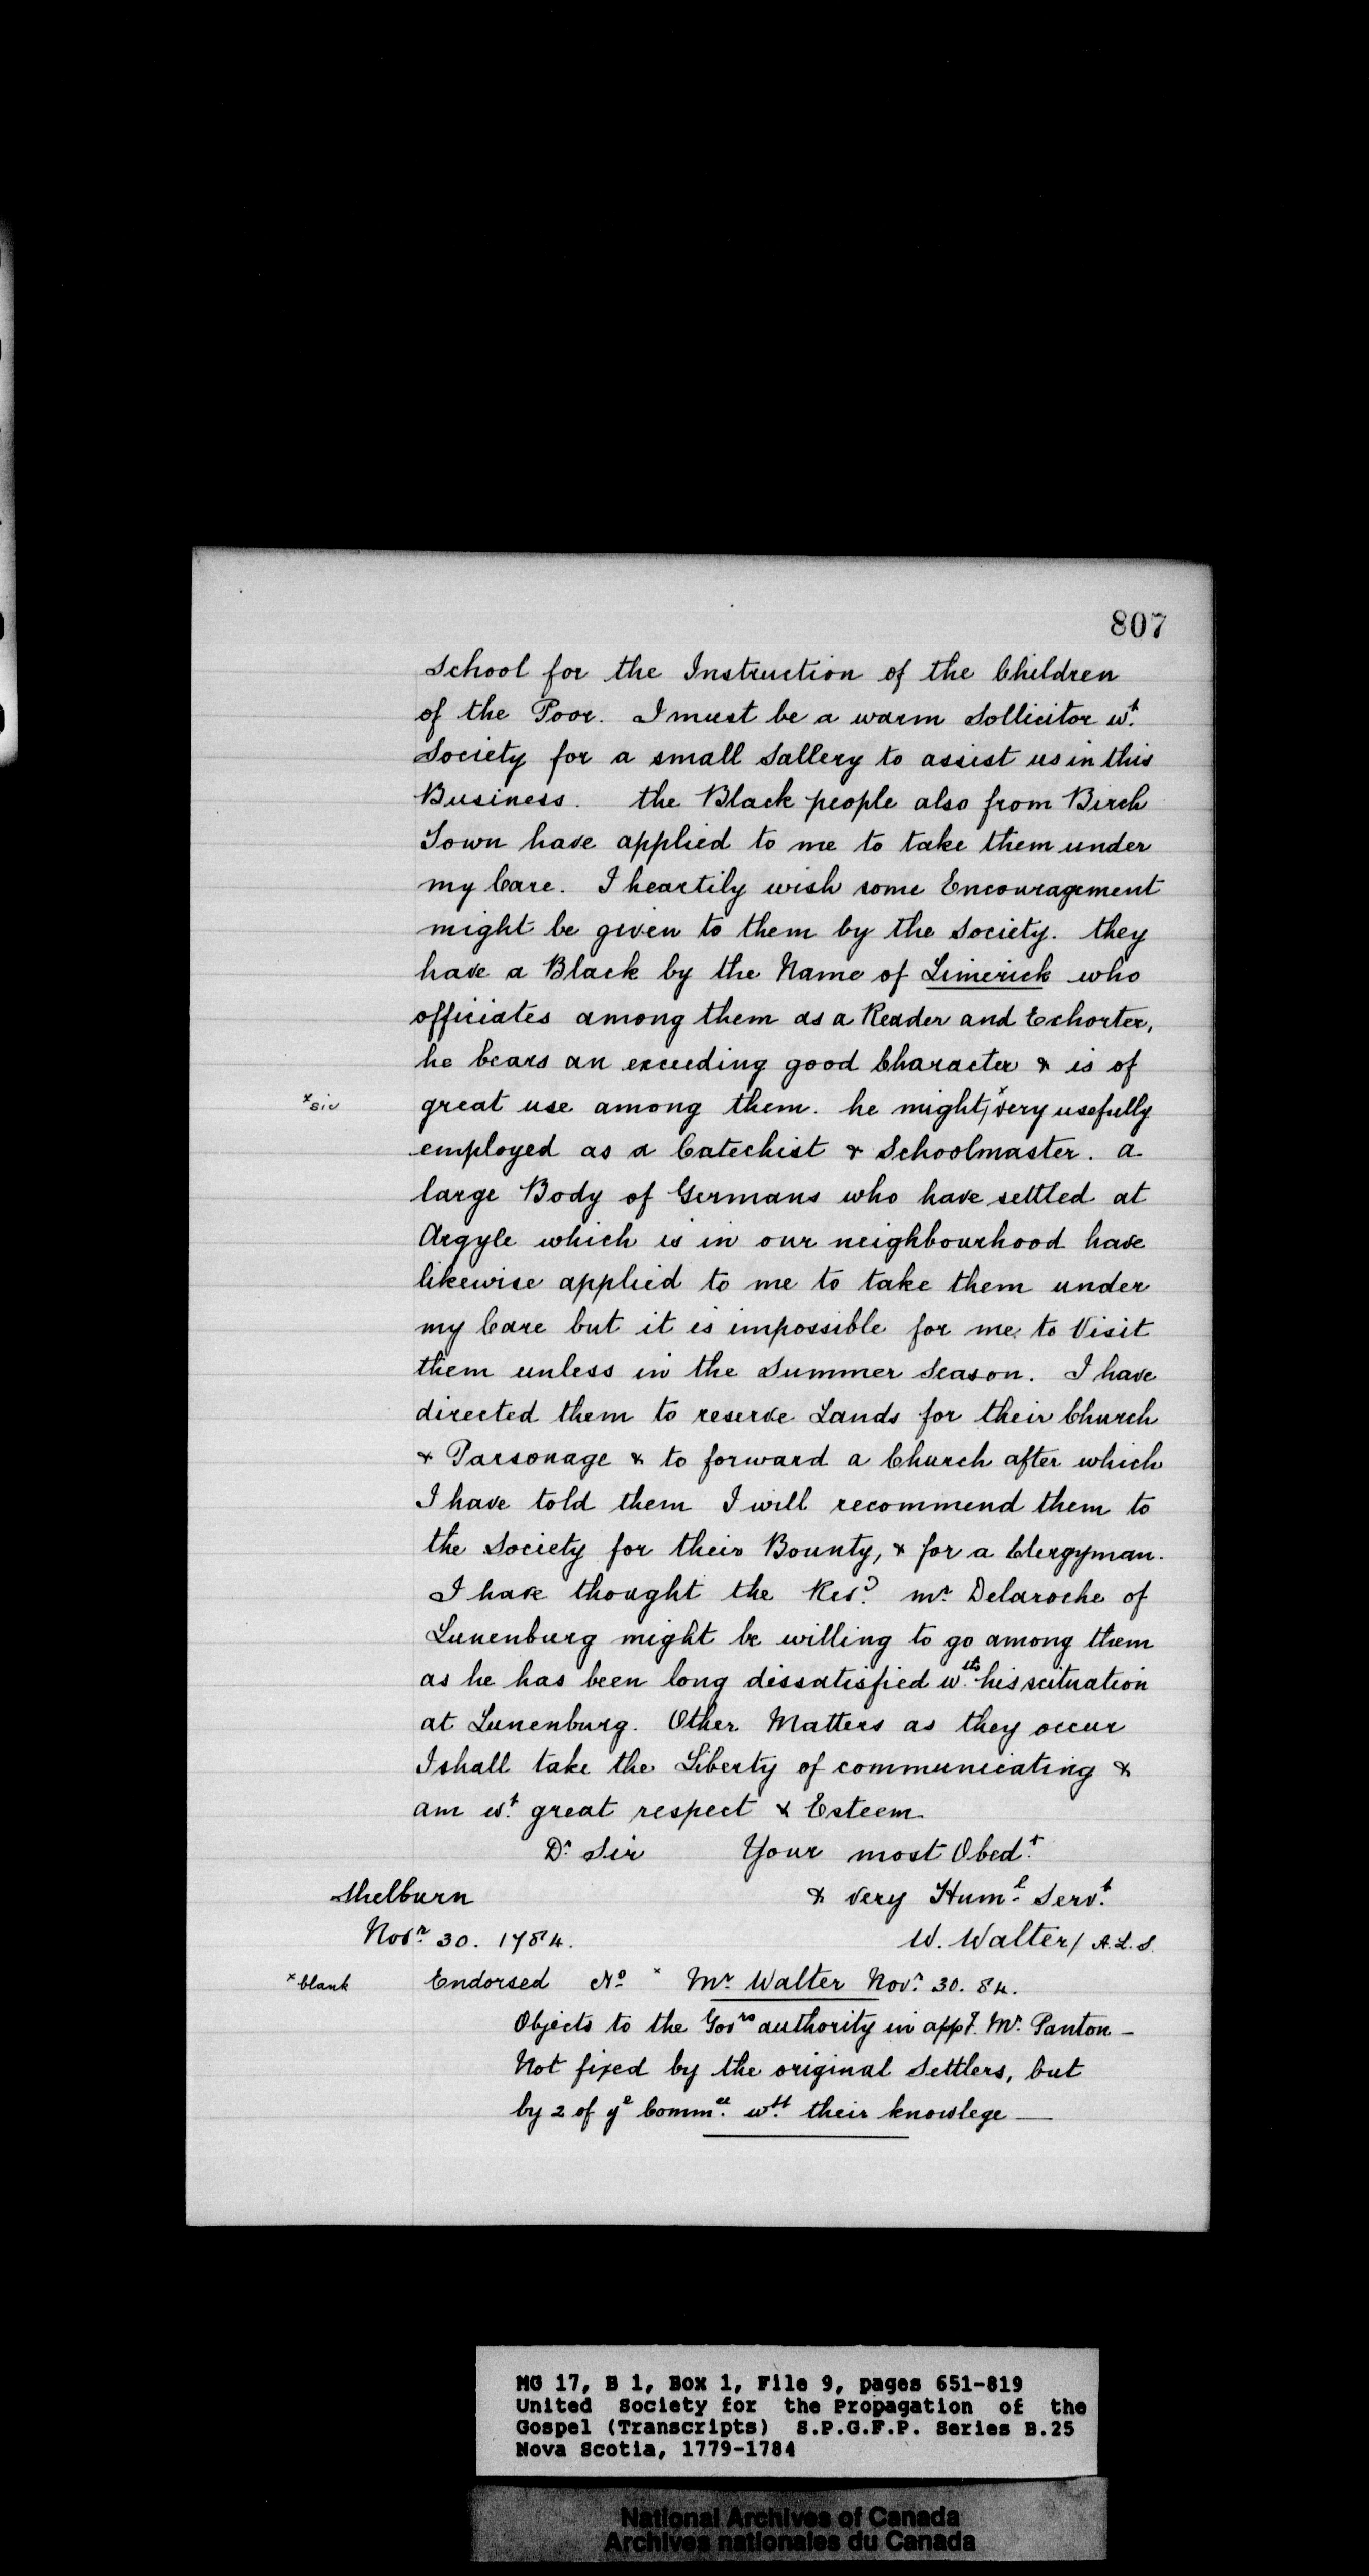 807
School for the Instruction of the Children
of the Poor. I must be a warm Sollicitor wt.
Society for a small Sallery to assist us in this
Business. the Black people also from Birch
Town have applied to me to take them under
my Care. I heartily wish some Encouragement
might be given to them by the Society. they
have a Black by the Name of Limerick who
officiates among them as a Reader and Exhorter,
he bears an exceeding good Character & is of
x sic great use among them. he might, x very usefully
employed as a Catechist & Schoolmaster. a
large Body of Germans who have settled at
Argyle which is in our neighbourhood have
likewise applied to me to take them under
my Care but it is impossible for me to Visit
them unless in the Summer Season. I have
directed them to reserve Lands for their Church
& Parsonage & to forward a Church after which
I have told them I will recommend them to
the Society for their Bounty, & for a Clergyman.
I have thought the Revd. mr. Delaroche of
Lunenburg might be willing to go among them
as he has been long dissatisfied wth. his scituation
at Lunenburg. Other Matters as they occur
I shall take the Liberty of communicating &
am wt. great respect & Esteem
Dr. Sir Your most Obedt.
Shelburn & very Huml. Servt.
Novr. 30. 1784. W. Walter/ A.L.S.
x blank Endorsed No. x Mr. Walter Novr. 30. 84.
Objects to the Govrs authority in appt. Mr. Panton –
Not fixed by the original Settlers, but
by 2 of ye Commee. wtt. their knowlege —
MG 17, B 1, Box 1, File 9, pages 651-819
United Society for the Propagation of the
Gospel (Transcripts) S.P.G.F.P. Series B.25
Nova Scotia, 1779-1784
National Archives of Canada
Archives nationales du Canada